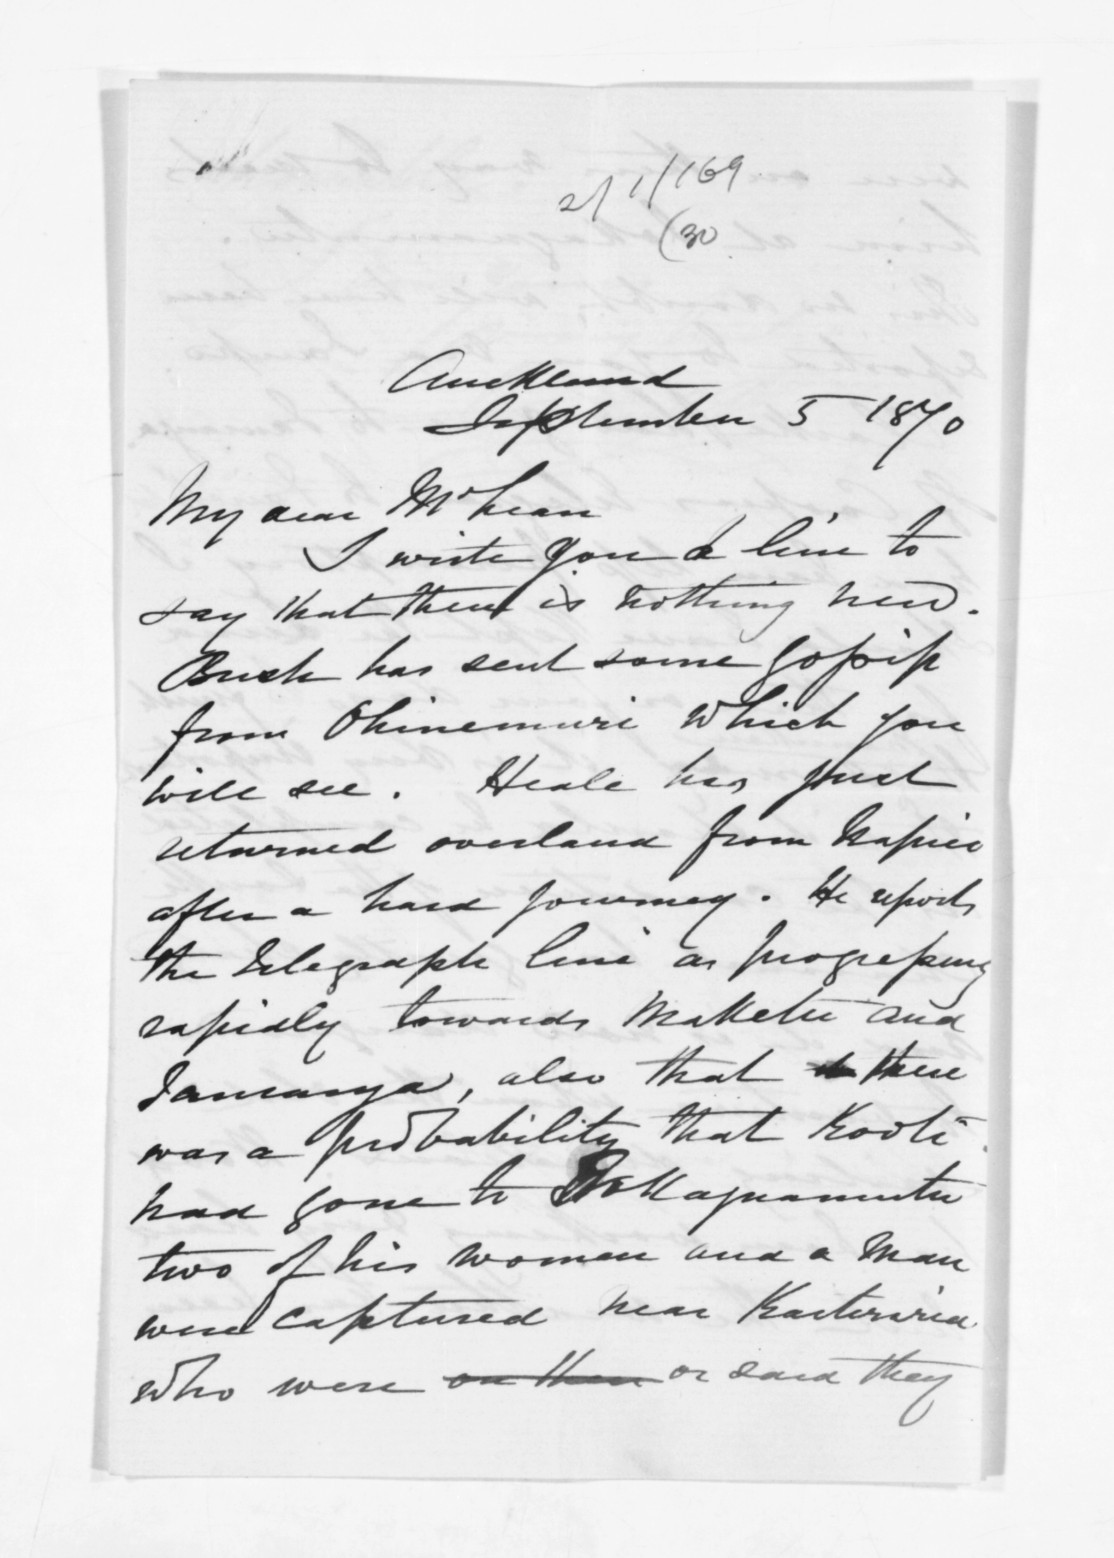 2/1/169
(30
Auckland
September 5 1870
My dear McLean
I write you a line to
say that there is nothing new.
Bush has sent some gossip
from Ohinemuri which you
will see. Heale has just
returned overland from Napier
after a hard journey. He reports
the Telegraph line as progressing
rapidly towards Maketu and
Tauranga, also that there
was a probability that Kooti
had gone to Tokaguamutu
two of his women and a man
were captured near Kaiteriria
who were on their or said they